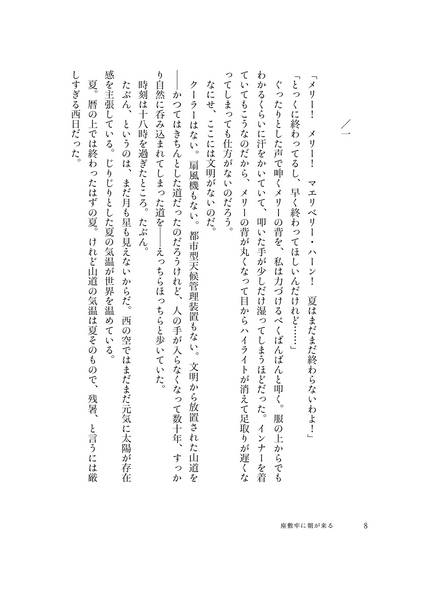 ／一
「メリー！　メリー！　マエリベリー・ハーン！　夏はまだまだ終わらないわよ！」
「とっくに終わってるし、早く終わってほしいんだけれど……」
ぐったりとした声で呻くメリーの背を、私は力づけるべくばんばんと叩く。服の上からでも
わかるくらいに汗をかいていて、叩いた手が少しだけ湿ってしまうほどだった。インナーを着
ていてもこうなのだから、メリーの背が丸くなって目からハイライトが消えて足取りが遅くな
ってしまっても仕方がないのだろう。
なにせ、ここには文明がないのだ。
クーラーはない。扇風機もない。都市型天候管理装置もない。文明から放置された山道を
――かつてはきちんとした道だったのだろうけれど、人の手が入らなくなって数十年、すっか
り自然に呑み込まれてしまった道を――えっちらほっちらと歩いていた。
時刻は十八時を過ぎたところ。たぶん。
たぶん、というのは、まだ月も星も見えないからだ。西の空ではまだまだ元気に太陽が存在
感を主張している。じりじりとした夏の気温が世界を温めている。
夏。暦の上では終わったはずの夏。けれど山道の気温は夏そのもので、残暑、と言うには厳
しすぎる西日だった。
座敷牢に朝が来る
8